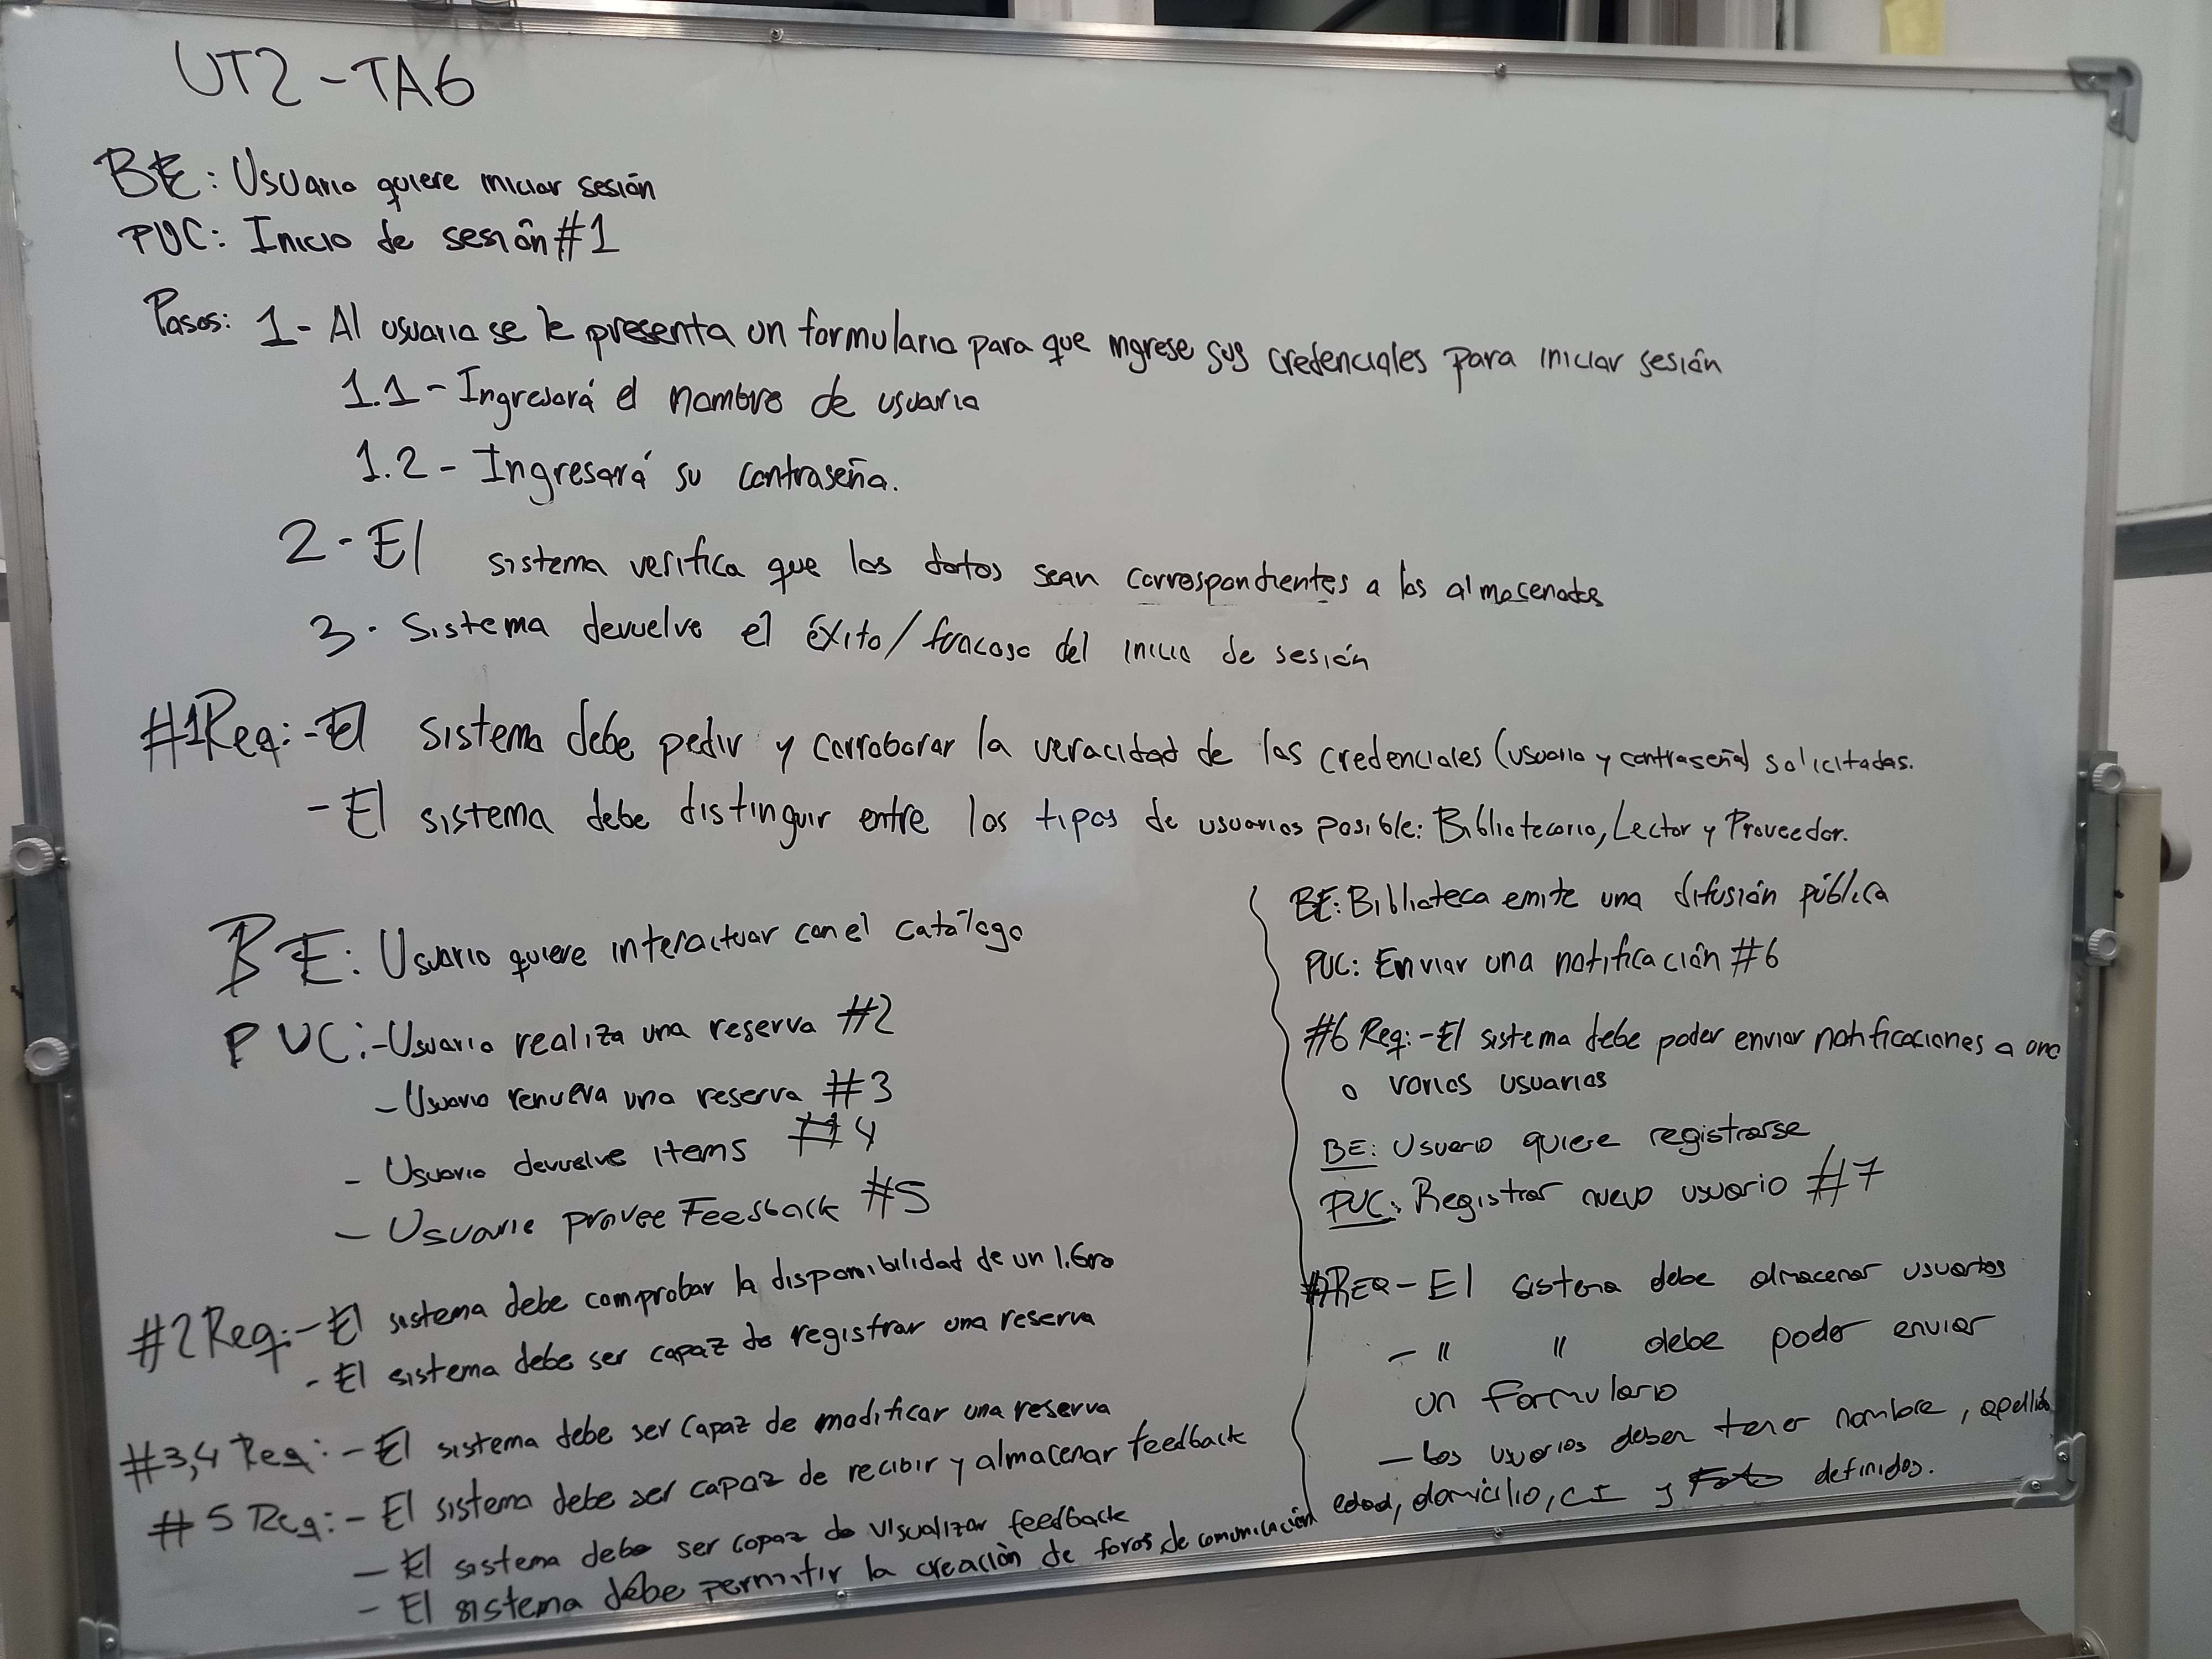 UT2-TA6
BE: Usuario quiere iniciar sesión
PUC: Inicio de sesión #1
Pasos: 1- Al usuario se le presenta un formulario para que ingrese sus credenciales para iniciar sesión
1.1- Ingresará el nombre de usuario
1.2- Ingresará su contraseña.
2- El sistema verifica que los datos sean correspondientes a los almacenados
3. Sistema devuelve el éxito/fracaso del inicio de sesión
#1Req:-El sistema debe pedir y corroborar la veracidad de las credenciales (usuario y contraseña) solicitadas.
-El sistema debe distinguir entre los tipos de usuarios posible: Bibliotecario, Lector y Proveedor.
BE: Usuario quiere interactuar con el catálogo
PUC:-Usuario realiza una reserva #2
-Usuario renueva una reserva #3
- Usuario devuelve items #4
- Usuario provee Feesback #5
#2Req:-El sistema debe comprobar la disponibilidad de un libro
-El sistema debe ser capaz de registrar una reserva
#3,4 Req:-El sistema debe ser capaz de modificar una reserva
#5 Req:-El sistema debe ser capaz de recibir y almacenar feedback
-El sistema debe ser capaz de visualizar feedback
-El sistema debe permitir la creación de foros de comunicación
BE: Biblioteca emite una difusión pública
PUC: Enviar una notificación #6
#6 Req:-El sistema debe poder enviar notificaciones a uno
o varios usuarios
BE: Usuario quiere registrarse
PUC: Registrar nuevo usuario #7
#7REQ-El sistema debe almacenar usuarios
- " " debe poder enviar
un formulario
-Los usuarios deben tener nombre, apellido
edad, domicilio, CI y definidos.